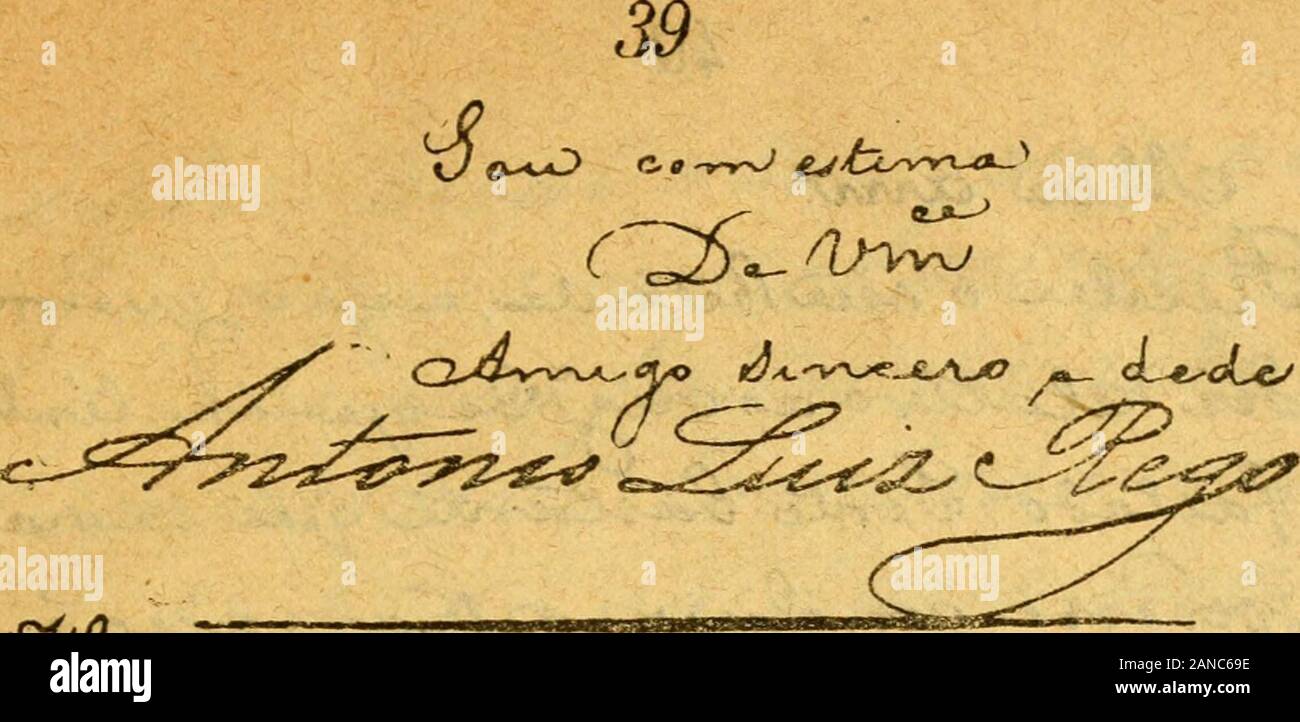 39
Sou com estima
De Vm ce
Amigo sincero e dedc
Antonio Luiz Rego
alamy
alamy
alamy
alamy
alamy
alamy
alamy
Image ID: 2ANC69E
www.alamy.com